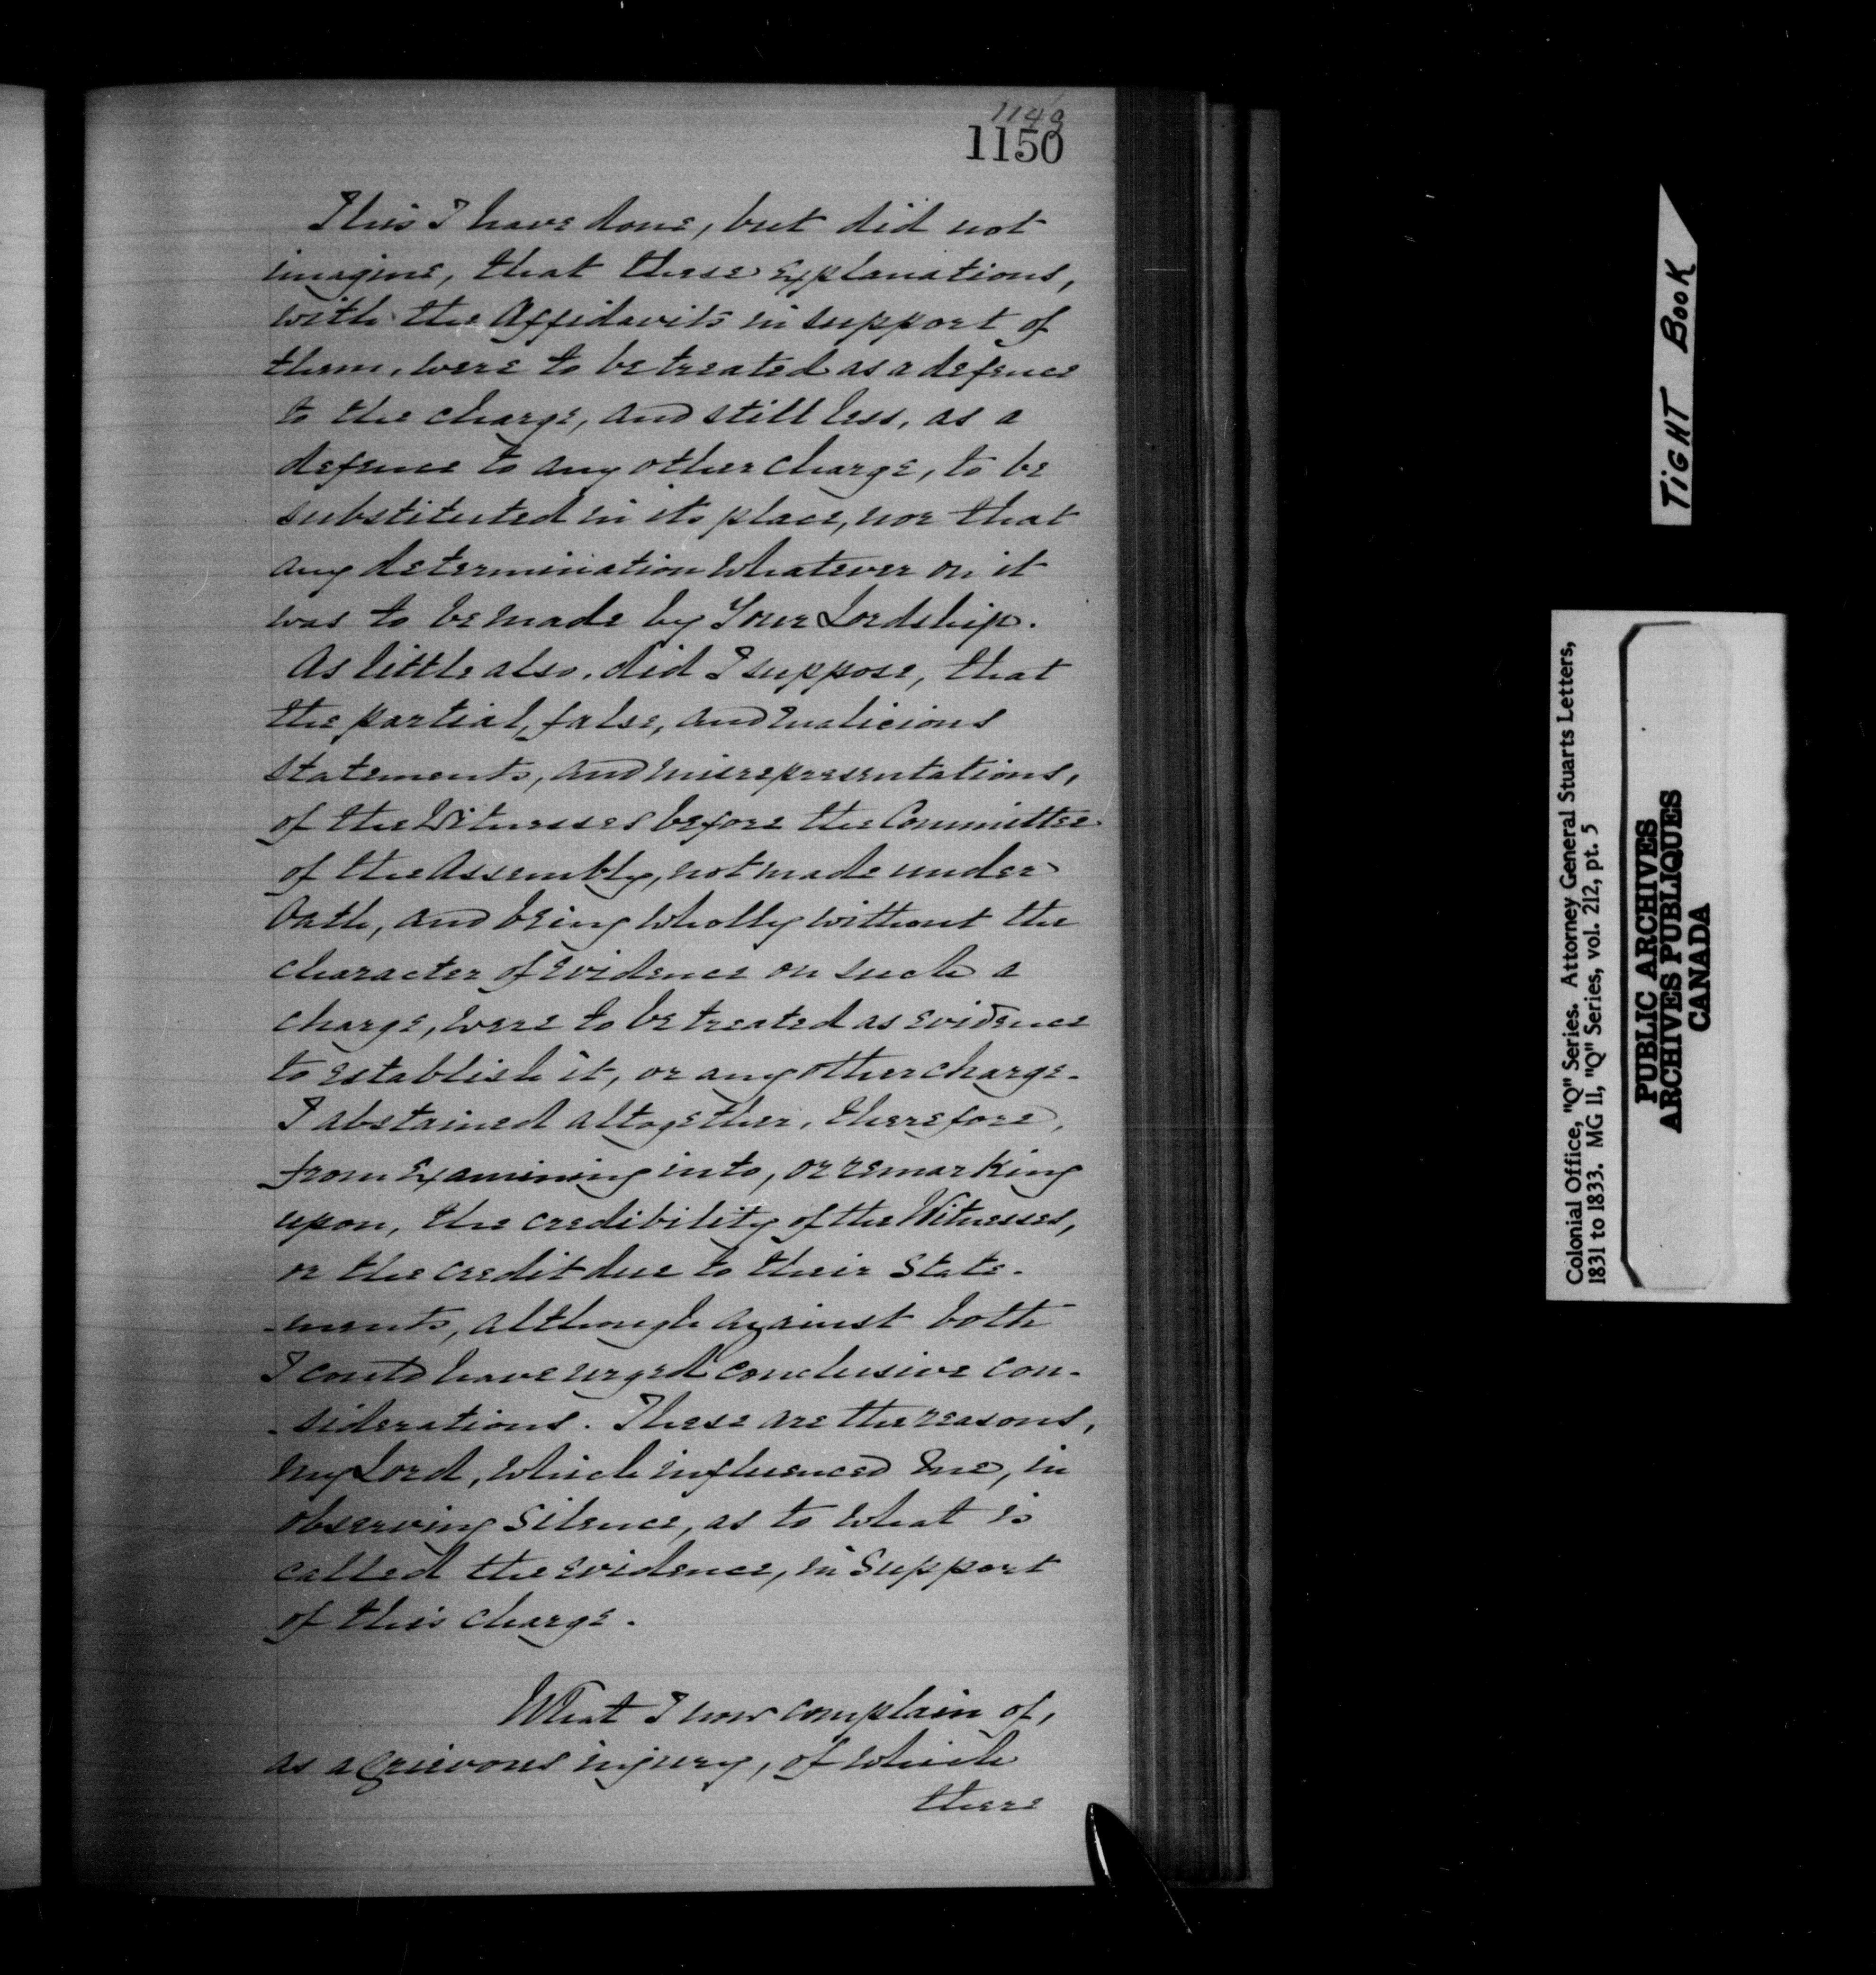 1149
1150
This I have done, but did not
imagine, that these explanations,
with the Affidavits in support of
them, were to be treated as a defence
to the charge, and still less, as a
defence to any other charge, to be
substituted in its place, nor that
any determination whatever on it
was to be made by Your Lordship.
As little also, did I suppose, that
the partial, false, and malicious
statements, and misrepresentations,
of the Witnesses before the Committee
of the Assembly, not made under
Oath, and being wholly without the
character of evidence on such a
charge, were to be treated as evidence
to establish it, or any other charge.
I abstained altogether, therefore,
from examining into, or remarking
upon, the credibility of the Witnesses,
or the credit due to their State-
-ments, although against both
I could have urged conclusive con-
-siderations. These are the reasons,
my Lord, which influenced me, in
observing silence, as to what is
called the evidence, in support
of this charge.
What I now complain of,
as a grievous injury, of which
there
TIGHT BOOK
Colonial Office, "Q" Series. Attorney General Stuarts Letters,
1831 to 1833. MG 11, "Q" Series, vol. 212, pt. 5
PUBLIC ARCHIVES
ARCHIVES PUBLIQUES
CANADA